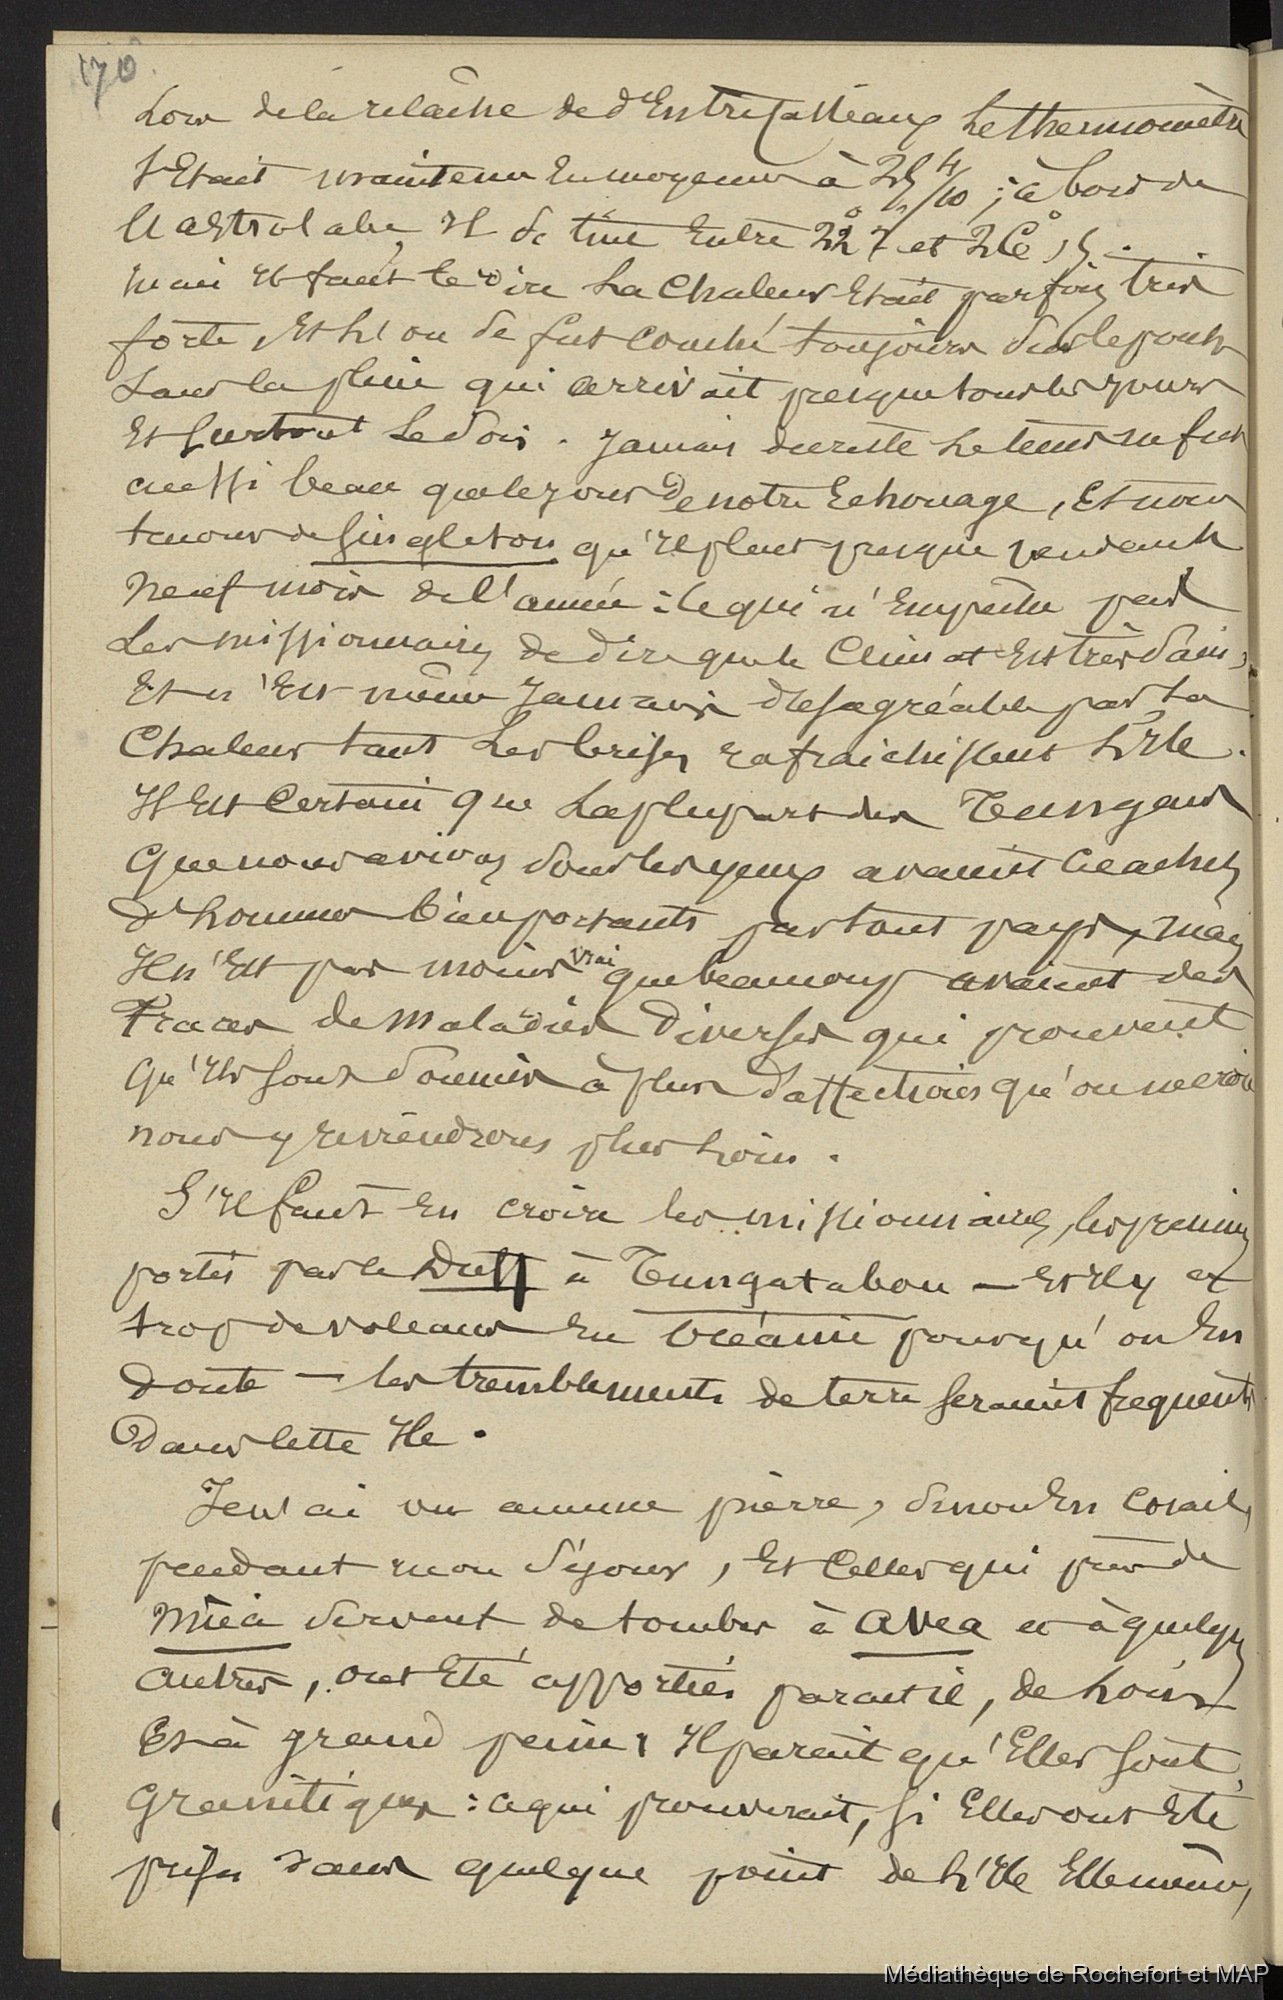 170
Lors de la relâche de d'Entrecasteaux le thermomètre
s'était maintenu en moyenne à 25 4/10 ; à bord de
l'Astrolabe, il se tint entre 22° 7 et 26° 5.
mais il faut le dire la chaleur était parfois très
forte, et l'on se fut couché toujours sur le pont
sans la pluie qui arrivait presque tous les jours
et surtout le soir. Jamais du reste le tems ne fut
aussi beau que les jours de notre échouage, et nous
tenons de Singleton qu'il pleut presque pendant
neuf mois de l'année : ce qui n'empêche pas
les missionnaires de dire que le climat est très sain,
et n'est même jamais désagréable par la
chaleur tant les brises rafraichissent l'île.
Il est certain que la plupart des Tungas
que nous avions sous les yeux avaient le cachet
d'hommes bien portants partout pays, mais
il n'est pas moins vrai que beaucoup avaient des
traces de maladies diverses qui prouvent
qu'ils sont soumis à plus d'affections qu'on ne croit
nous y reviendrons plus loin.
S'il faut en croire les missionnaires, les premiers
portés par le Duff à Tungatabou — et il y a
trop de volcans en Océanie pour qu'on en
doute — les tremblements de terre seraient fréquents
dans cette île.
Je n'ai vu aucune pierre, sinon en corail,
pendant mon séjour, et celles qui près de
Mùa servent de tombes à Avea et à quelques
autres, ont été apportées parait il, de loin
et à grand peine; il parait qu'elles sont
granitiques : ce qui prouverait, si elles ont été
prises dans quelque point de l'île elle même,
Médiathèque de Rochefort et MAP